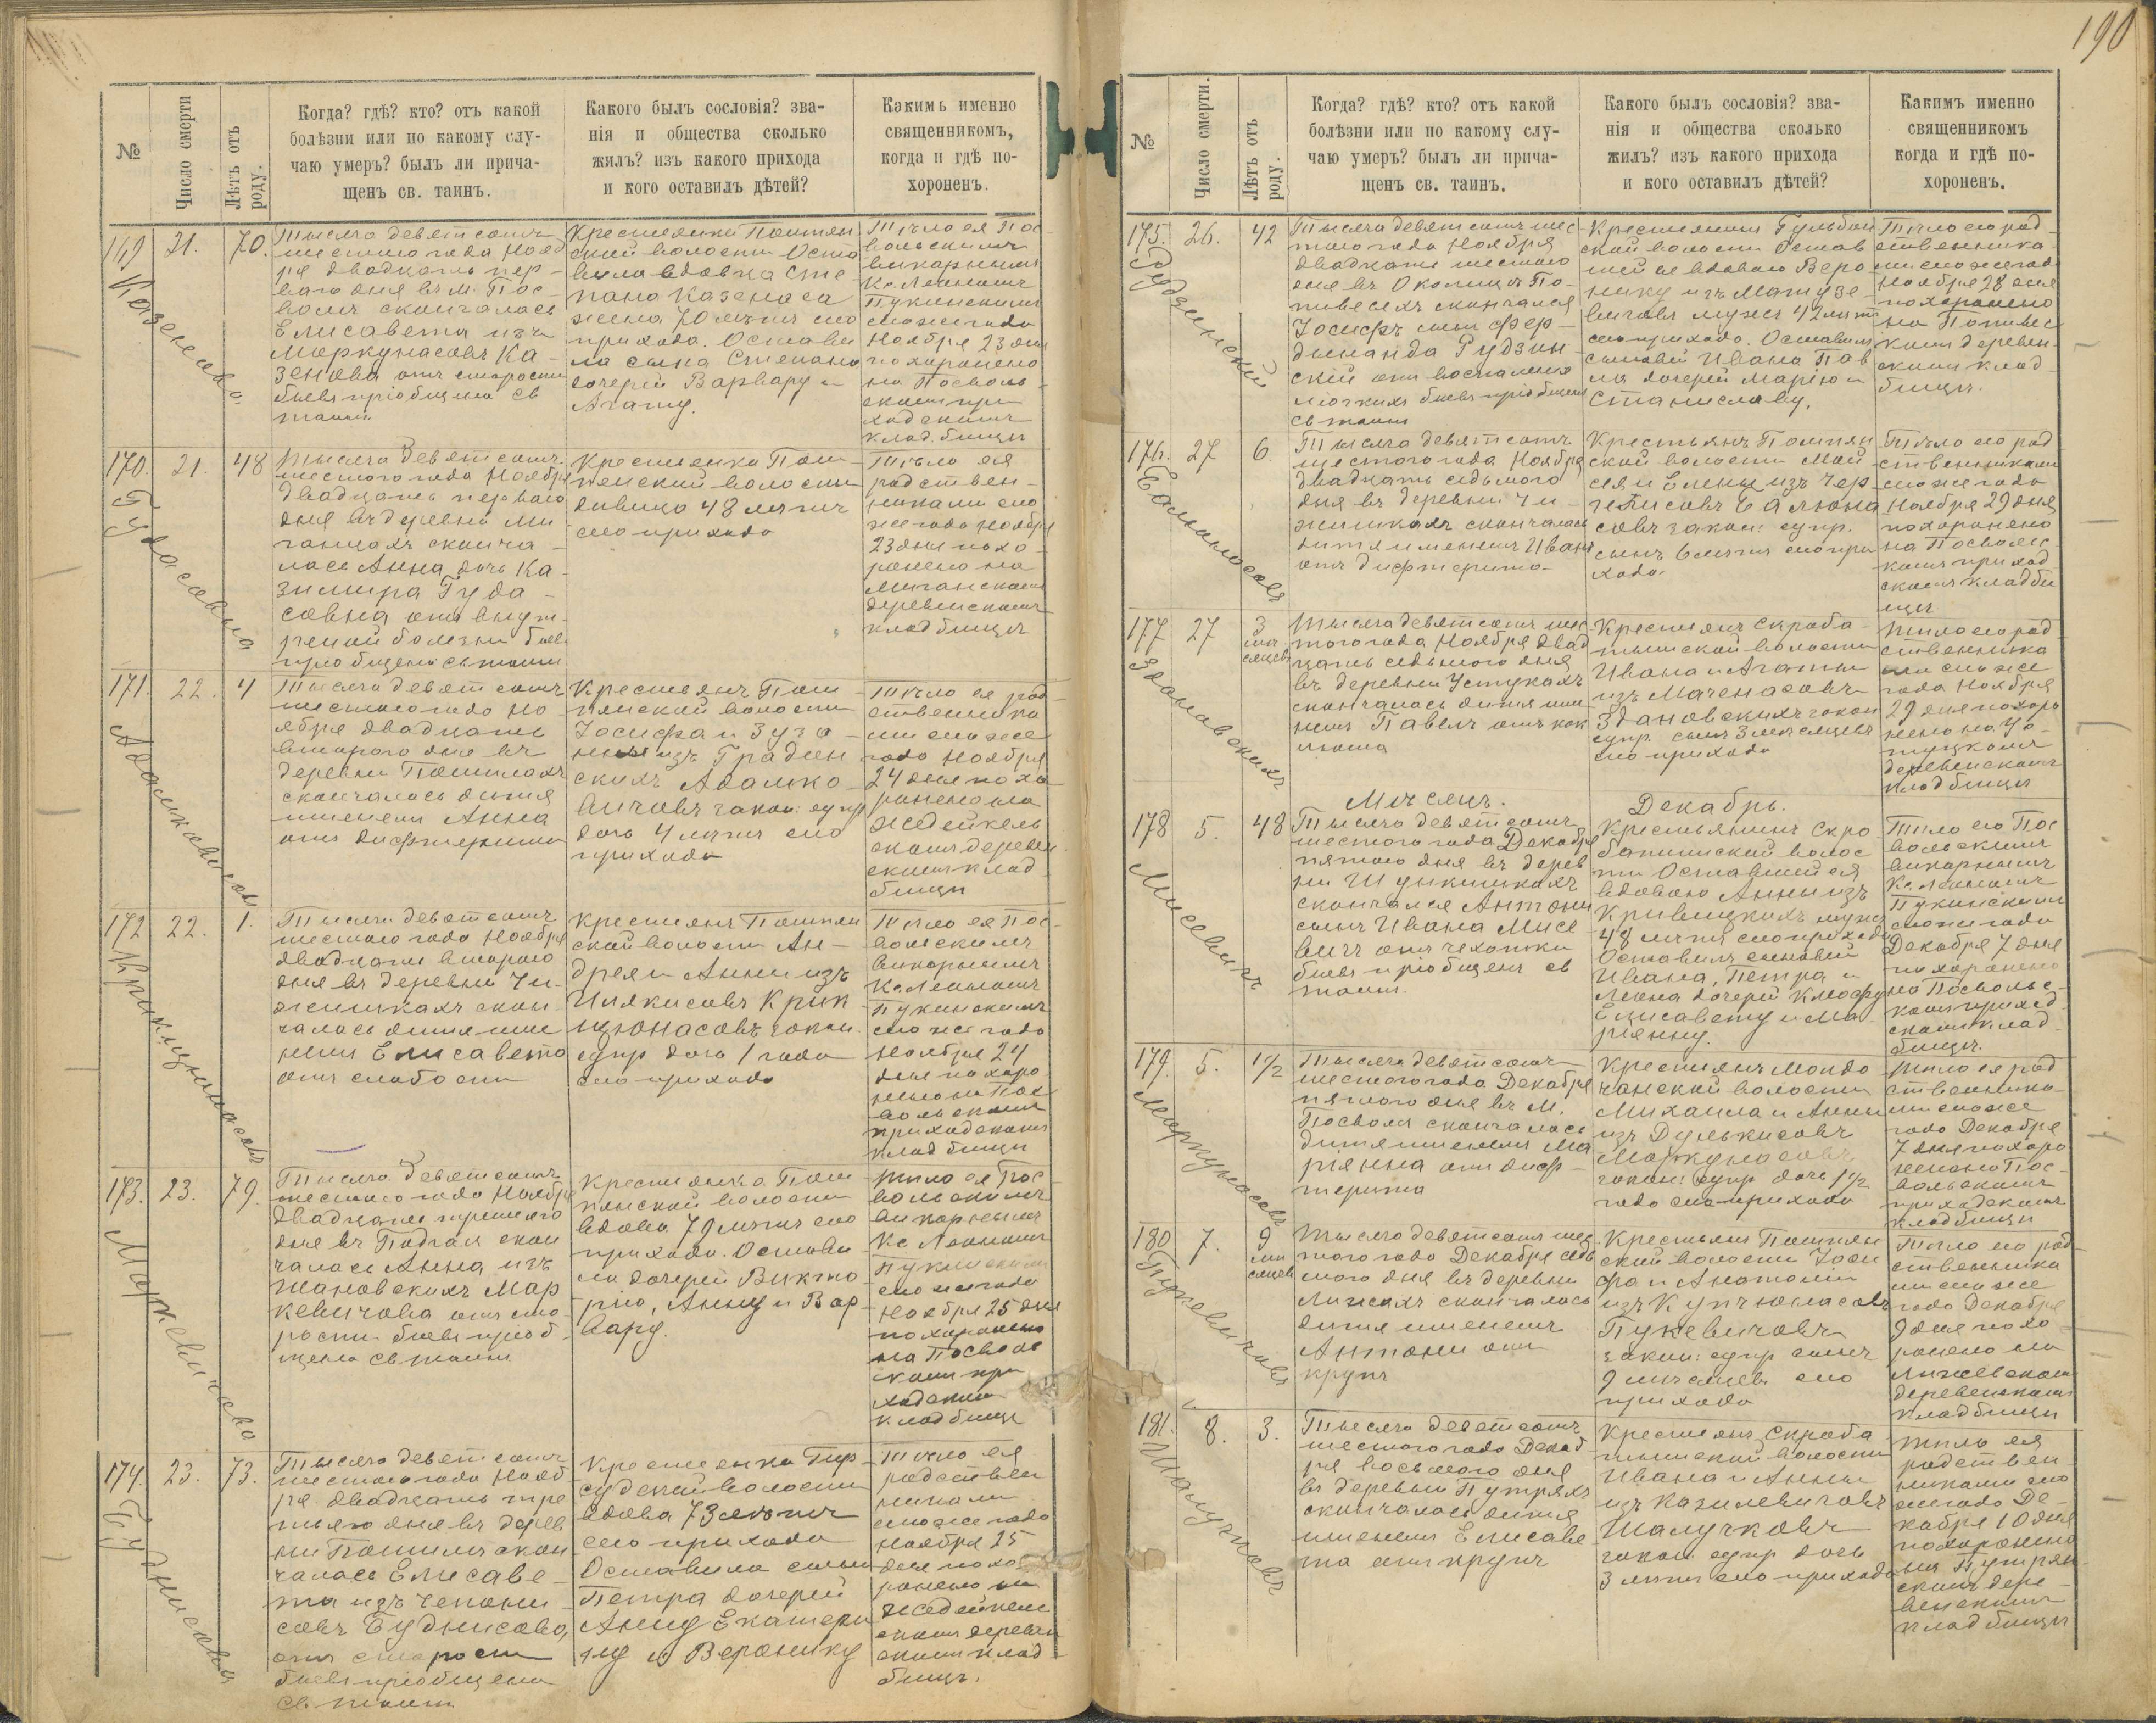 190
№
Число смерти
Лѣтъ отъ роду.
Когда? гдѣ? кто? отъ какой
болѣзни или по какому слу-
чаю умеръ? былъ ли прича-
щенъ св. таинъ.
Какого былъ сословія? зва-
нія и общества сколько
жилъ? изъ какого прихода
и кого оставилъ дѣтей?
Какимъ именно
священникомъ,
когда и гдѣ по-
хороненъ.
169
21.
70.
Казенасова
Тысяча девятсотъ
шестого года Нояб
ря двадцать пер-
ваго дня въ м. Пос-
воль скончалась
Елисавета изъ
Моркунасовъ Ка-
зенова отъ старости
бывъ пріобщена св
таинъ
Крестьянка Помпян
ской волости Оста
вила вдовца Сте
пана Казенаса
жена 70 лѣтъ сего
прихода. Остави
ла сына Степана
дочерей Варвару и
Агату.
Тѣло ея Пос-
вольскимъ
викарнымъ
Кс. Леономъ
Пукинскимъ
сего же года
Ноября 23 дня
похоронено
на Посволь-
скомъ при-
ходскомъ
кладбищѣ
170.
21.
48
Гудасовна
Тысяча девятсотъ
шестого года Ноября
двадцать перваго
дня въ деревни Ми
ганцахъ сконча-
лась Анна дочь Ка-
зимира Гуда-
совна отъ внут-
реной болезни бывъ
пріобщена св таинъ
Крестьянка Пом-
пянской волости
дивица 48 лѣтъ
сего прихода
Тѣло ея
родствен-
никами сего
же года Ноября
23 дня похо-
ронено на
Миганскомъ
деревенскомъ
кладбищѣ
171.
22.
4
Тысяча девятсотъ
шестого года Но
ября двадцать
второго дня въ
деревни Пашилахъ
скончалась дитя
именемъ Анна
отъ дифтерита
Крестьянъ Пом-
пянской волости
Іосифа и Зуза-
нны изъ Градин
скихъ Адамко-
вичовъ закон: супр
дочь 4 лѣтъ сего
прихода
Тѣло ея род-
ственника
ми сего же
года Ноября
24 дня похо-
ронено на
Жедейкель
скомъ деревен
скомъ клад
бищѣ
172
22.
1.
Тысяча девятсотъ
шестого года Ноября
двадцать второго
дня въ деревни Чи-
жишкахъ скон
чалась дитя име
немъ Елисавета
отъ слабости
Крестьянъ Помпян
ской волости Ан-
дрея и Анны изъ
супр дочь 1 года
сего прихода
Тѣло ея Пос-
вольскимъ
викарнымъ
Кс. Леономъ
Пукинскимъ
сего же года
Ноября 24
дня похоро
нено на Пос
вольскомъ
приходскомъ
кладбищѣ
173.
23.
79.
Маркевичова
Тысяча девятсотъ
шестого года Ноября
двадцать третьяго
чалась Анна изъ
Яновскихъ Мар
кевичова отъ ста
рости бывъ приоб
щена св таинъ
Крестьянка Пом
пянской волости
вдова 79 лѣтъ сего
прихода. Остави
ла дочерей Викто
рію, Анну и Вар
вару.
Тѣло ея Пос
вольскимъ
викарнымъ
Кс Леономъ
Пукинскимъ
сего же года
Ноября 25 дня
похоронено
на Посволь
скомъ при
ходскомъ
кладбищѣ
174.
23.
73.
Будрисова
Тысяча девятсотъ
шестого года Нояб
ря двадцать тре
тьяго дня въ дерев
ни Пашиляхъ скон
чалась Елисаве-
совъ Будрисова,
отъ старости
бывъ пріобщена
св таинъ
вдова 73 лѣтъ
сего прихода
Оставила сына
Петра дочерей
Анну Екатери
ну и Веронику
Тѣло ея
родствен
никами
сего же года
Ноября 25
дня похо
ронено на
Жедейкель
скомъ деревен
скомъ клад
бищѣ.
№
Число смерти.
Лѣтъ отъ роду.
Когда? гдѣ? кто? отъ какой
болѣзни или по какому слу-
чаю умеръ? былъ ли прича-
щенъ св. таинъ.
Какого былъ сословія? зва-
нія и общества сколько
жилъ? изъ какого прихода
и кого оставилъ дѣтей?
Какимъ именно
священникомъ
когда и гдѣ по-
хороненъ.
175.
26.
42
Рудзинскій
Тысяча девятсотъ шес
того года Ноября
двадцать шестого
дня въ Околицѣ По-
пивесехъ скончался
Іосифъ сынъ Фер-
динанда Рудзин
скій отъ воспаленія
легкихъ бывъ пріобщенъ
св таинъ
ской волости Остав
шейся вдовою Веро
нику изъ Матузе
вичовъ мужъ 42 лѣтъ
сего прихода. Оставилъ
сыновей Ивана Пав
ла дочерей Марію и
Станиславу.
Тѣло его род
ственника
ми сего же года
Ноября 28 дня
похоронено
на Попивес
комъ деревен-
скомъ клад
бищѣ.
176.
27
6.
Тысяча девятсотъ
шестого года Ноября
двадцать седьмого
дня въ деревни Чи-
жишкахъ скончалась
дитя именемъ Иванъ
отъ дифтерита
Крестьянъ Помпян
ской волости Мой
сея и Елены изъ Чер
совъ закон: супр.
сынъ 6 лѣтъ сего при
хода.
Тѣло его род
ственниками
сего же года
Ноября 29 дня
похоронено
на Посволь
комъ приход
скомъ кладби
щѣ
177
27
3
мѣ
сяцевъ
Здановскихъ
Тысяча девятсотъ шес
того года Ноября двад
цать седьмого дня
въ деревни Устукахъ
скончалась дитя име
немъ Павелъ отъ кок
люша
Крестьянъ Скроба-
тышской волости
Ивана и Агаты
изъ Маченасовъ
Здановскихъ закон
супр. сынъ 3 мѣсяцевъ
сего прихода
Тѣло его род
ственника
ми сего же
года Ноября
29 дня похоро
деревенскомъ
кладбищѣ
Мѣсяцъ.
Декабрь.
178
5.
48
Мисевичъ
Тысяча девятсотъ
шестого года Декабря
пятого дня въ дерев
скончался Антони
сынъ Ивана Мисе
вичъ отъ чехотки
бывъ пріобщенъ св
таинъ.
Крестьянинъ Скро
батишской волос
ти Оставшейся
вдовою Анны изъ
Кривицкихъ мужъ
48 лѣтъ сего прихода
Оставилъ сыновей
Ивана, Петра и
Елисавету и Ма-
ріянну.
Тѣло его Пос
вольскимъ
викарнымъ
Кс. Леономъ
Пукинскимъ
сего же года
Декабря 7 дня
похоронено
на Посвольс-
комъ приход
скомъ клад
бищѣ.
179.
5.
1½
Моркунасовъ
Тысяча девятсотъ
шестого года Декабря
пятого дня въ М.
Посволи скончалась
дитя именемъ Ма
ріянна отъ диф-
терита
чанской волости
Михаила и Анны
изъ Дулькисовъ
Моркунасовъ
закон: супр дочь 1½
года сего прихода
Тѣло ея род
ственника-
ми сего же
года Декабря
7 дня похоро
нено на Пос-
вольскомъ
приходскомъ
кладбищѣ
180
7.
9
мѣ
сяцевъ
Пукевичовъ
Тысяча девятсотъ шес
того года Декабря седь
мого дня въ деревни
скончалась
дитя именемъ
Антони отъ
крупъ
Крестьянъ Помпян
ской волости Іоси
фа и Анатоліи
Пукевичовъ
закон: супр сынъ
9 мѣсяцевъ сего
прихода
Тѣло его род-
ственника
ми сего же
года Декабря
9 дня похо-
ронено на
деревенскомъ
кладбищѣ
181.
8.
3.
Шалучковъ
Тысяча девятсотъ
шестого года Декаб
ря восьмого дня
въ деревни Путряхъ
скончалась дитя
именемъ Елисаве
та отъ крупъ
Крестьянъ Скроба
тышской волости
Ивана и Анны
изъ Казилевичовъ
Шалучковъ
закон. супр дочь
3 лѣтъ сего прихода
Тѣло ея
родствен-
никами сего
же года Де-
кабря 10 дня
похоронено
на Путрян-
скомъ дере-
венскомъ
кладбищѣ